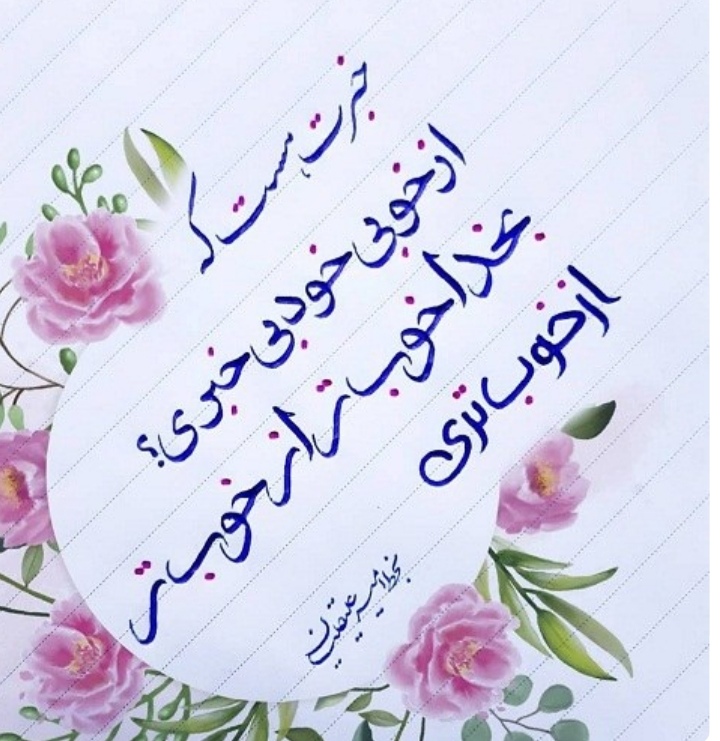 خبرت هست که
از خوبی خود بی خبری؟
بخدا خوب تر از خوب تر
از خوب تری